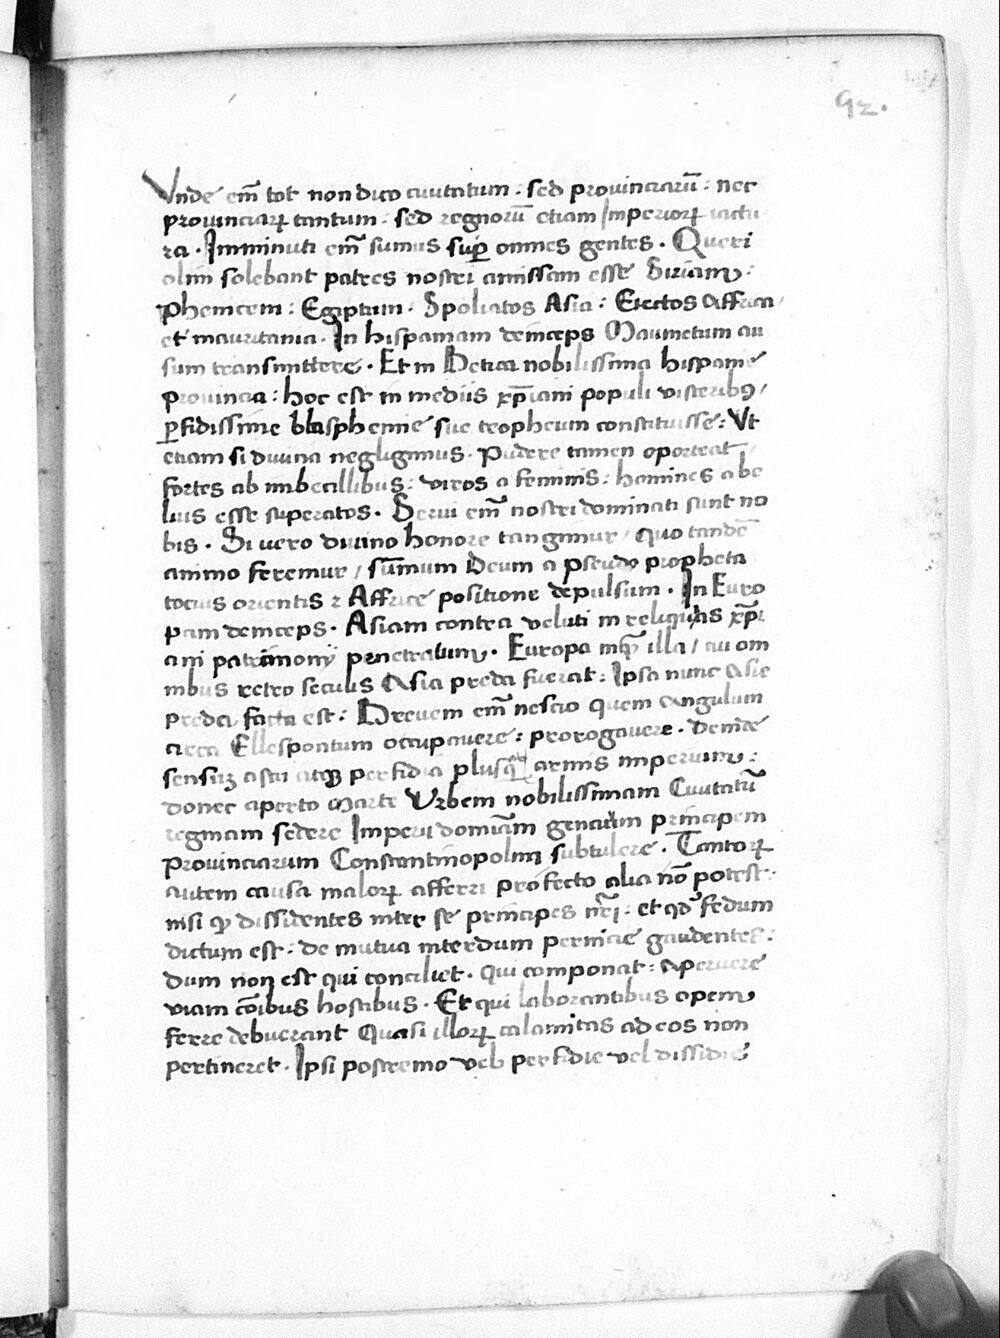 92.
Vnde em̄ tot non dico ciuitatum : sed prouinciarū : nec
prouinciaꝝ tantum : sed regnorū etiam Imperioꝝ iactu
ra . Imminuti em̄ sumus suꝑ omnes gentes . Queri
olim solebant patres nostri amissam esse Siriam :
Phenicem : Egiptum . Spoliatos Asia : Eiectos Affrica /
et mauritania . In hispaniam deinceps Maumetum au
sum transmittere . Et in Betica nobilissima hispanie
prouincia : hoc est in mediis xp̄iani populi visceribꝰ /
ꝑfidissime blasphemie sue tropheum constituisse : Vt
etiam si diuina negligimus . Pudere tamen oporteat /
fortes ab imbecillibus : viros a feminis : homines a be
luis esse superatos . Serui em̄ nostri dominati sunt no
bis . Si vero diuino honore tangimur / quo tandē
animo feremur / sūmum Deum a pseudo propheta
tocius orientis ⁊ Affrice positione depulsum . In Euro
pam deinceps . Asiam contra veluti in reliquias xp̄i
ani patrimonij penetratum . Europa inꝗ illa / cui om
nibus retro seculis Asia preda fuerat : Ipsa nunc Asie
preda facta est : Breuem em̄ nescio quem angulum
circa Ellespontum occupauere : prorogauere . Deinde
sensiꝫ astu atqꝫ perfidia plusꝗ̄ armis imperium :
donec aperto Marte Vrbem nobilissimam Ciuitatū
reginam sedere Imperii domināam gencium principem
prouinciarum Constantinopolim subtulere . Tantoꝝ
autem causa maloꝝ afferri profecto alia nō potest :
nisi ꝙ dissidentes inter se principes nr̄i : et qđ fedum
dictum est : de mutua interdum pernicie gaudentes :
dum non est qui conciliet . qui componat : aperuere
viam cōibus hostibus . Et qui laborantibus opem
ferre debuerant Quasi illoꝝ calamitas ad eos non
pertineret . Ipsi postremo vel perfidie vel dissidie